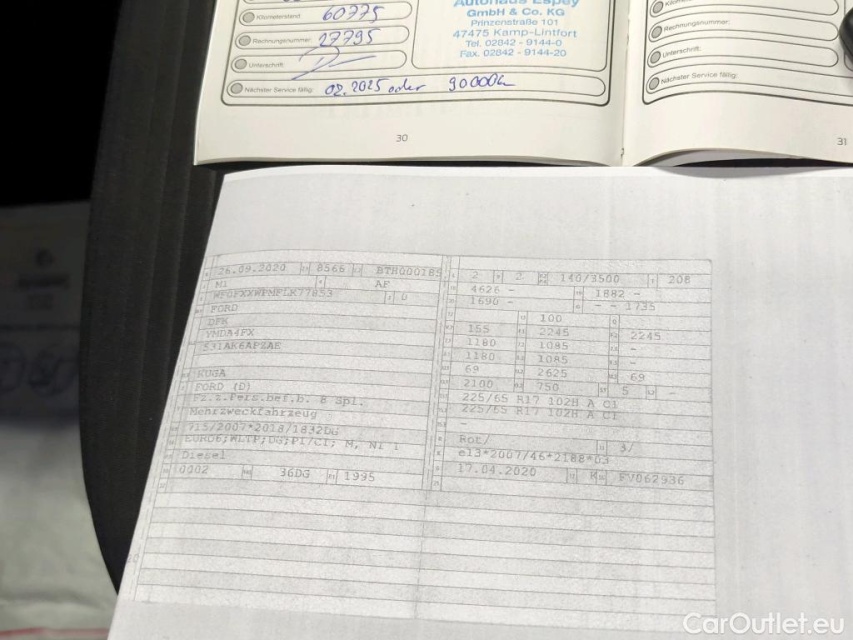 Kilometerstand: 60775
Autohaus Espey
GmbH & Co. KG
Prinzenstraße 101
47475 Kamp-Lintfort
Tel. 02842 - 9144-0
Fax. 02842 - 9144-20
Rechnungsnummer: 27795
Unterschrift:
Nächster Service fällig: 02.2025 oder 90000
30
Rechnungsnummer:
Unterschrift:
Nächster Service fällig:
31
26.09.2020 8566 BTH000185 2 2 140/3500 208
M1 AF 4626 - 1882 -
1690 - - - 1735
FORD 100
DFK 155 2245 2245
1180 1085 -
1180 1085 -
KUGA 69 2625 69
FORD (D) 2100 750 5 -
Fz.z.Pers.bef.b. 8 Spl. 225/65 R17 102H A C1
Mehrzweckfahrzeug 225/65 R17 102H A C1
715/2007*2018/1832DG -
EURO6;WLTP;DG;PI/CI; M, N1 I Rot/ 3/
Diesel e13*2007/46*2188*03
0002 36DG 1995 17.04.2020 K FV062936
CarOutlet.eu